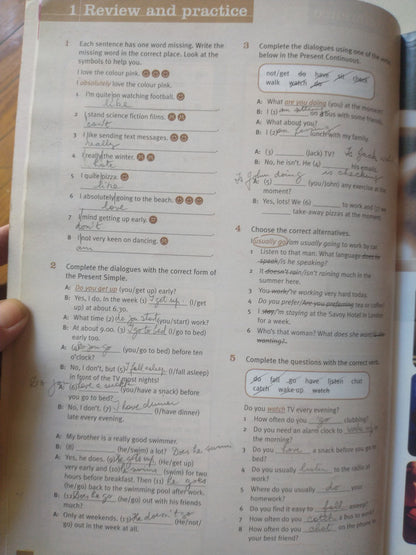 1 Review and practice
1 Each sentence has one word missing. Write the
missing word in the correct place. Look at the
symbols to help you.
I love the colour pink.
I absolutely love the colour pink.
1 I'm quite on watching football.
like
2 I stand science fiction films.
can't
3 I like sending text messages.
really
4 I really the winter.
hate
5 I quite pizza.
like
6 I absolutely going to the beach.
love
7 I mind getting up early.
don't
8 I not very keen on dancing.
am
2 Complete the dialogues with the correct form of
the Present Simple.
A: Do you get up (you/get up) early?
B: Yes, I do. In the week (1) I get up (I/get
up) at about 6.30.
A: What time (2) do you start (you/start) work?
B: At about 9.00. (3) I go to bed (I/go to bed)
early too.
A: (4) do you go (you/go to bed) before ten
o'clock?
B: No, I don't, but (5) I fall asleep (I/fall asleep)
in front of the TV most nights!
A: have a snack (you/have a snack) before
you go to bed?
B: No, I don't. (7) I have dinner (I/have dinner)
late every evening.
A: My brother is a really good swimmer.
B: (8) (he/swim) a lot? Does he swim
A: Yes, he does. (9) He gets up (He/get up)
very early and (10) swims (swim) for two
hours before breakfast. Then (11) he goes
(he/go) back to the swimming pool after work.
B: (12) Does he go (he/go) out with his friends
much?
A: Only at weekends. (13) He doesn't go (He/not/
go) out in the week at all.
3 Complete the dialogues using one of the verbs
below in the Present Continuous.
not/get do have sit check
walk watch do
A: What are you doing (you) at the moment?
B: I (1) am sitting on a bus with some friends.
A: What about you?
B: I (2) am lunch with my family.
A: (3) (Jack) TV? Is Jack
B: No, he isn't. He (4) his emails.
is checking
A: (5) (you/John) any exercise at the
moment?
B: Yes, lots! We (6) to work and (7)
take-away pizzas at the moment.
4 Choose the correct alternatives.
I usually go/am usually going to work by car
1 Listen to that man. What language does he
speak/is he speaking?
2 It doesn't rain/isn't raining much in the
summer here.
3 You work/'re working very hard today.
4 Do you prefer/Are you preferring tea or coffee?
5 I stay/'m staying at the Savoy Hotel in London
for a week.
6 Who's that woman? What does she want/is she
wanting?
5 Complete the questions with the correct verb.
do fall go have listen chat
catch wake up watch
Do you watch TV every evening?
1 How often do you go clubbing?
2 Do you need an alarm clock to wake up in
the morning?
3 Do you have a snack before you go to
bed?
4 Do you usually listen to the radio at
work?
5 Where do you usually do your
homework?
6 Do you find it easy to fall asleep?
7 How often do you catch a bus to work?
8 How often do you chat on the phone to
your best friend?